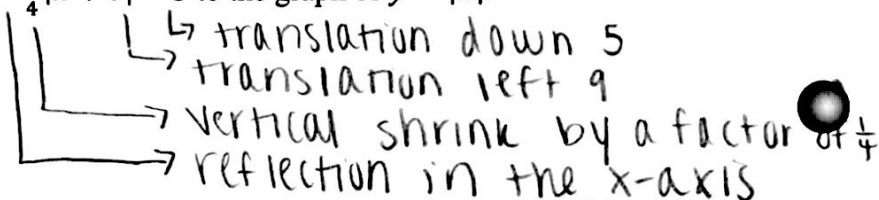 4
to the graph of y
↳ translation down 5
→ translation left 9
→ vertical shrink by a factor of 1/4
→ reflection in the x-axis